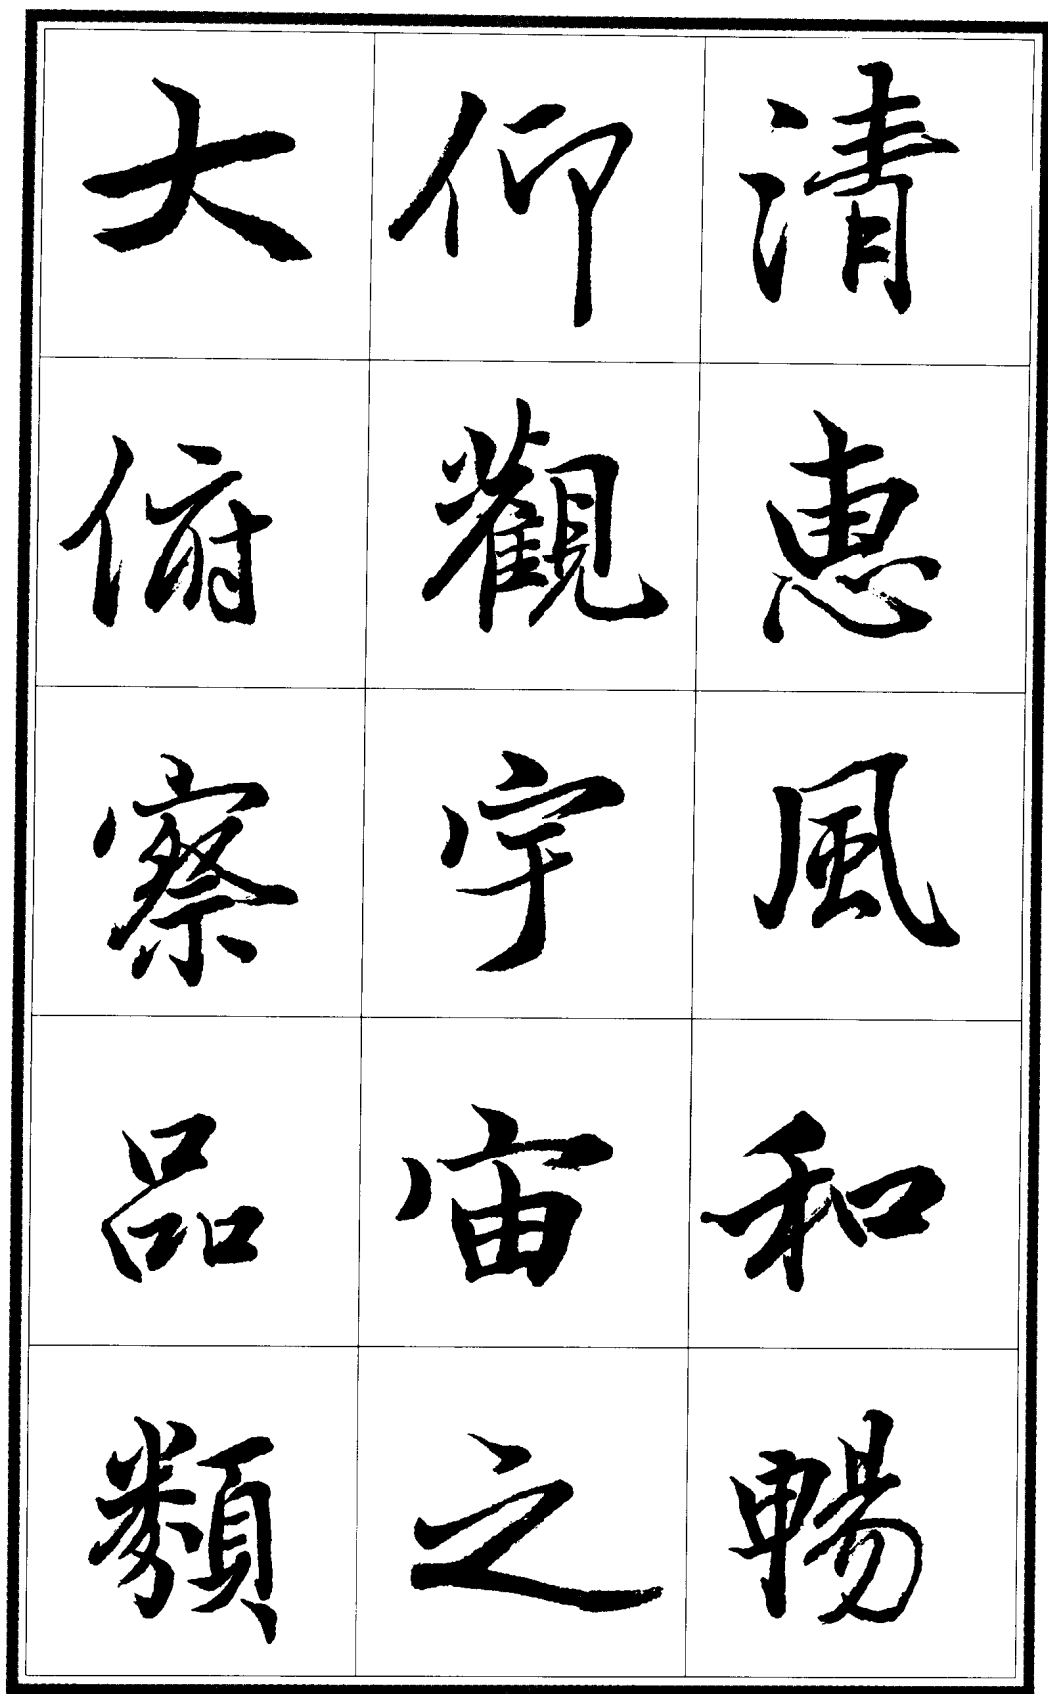 清惠風和暢
仰觀宇宙之
大俯察品類